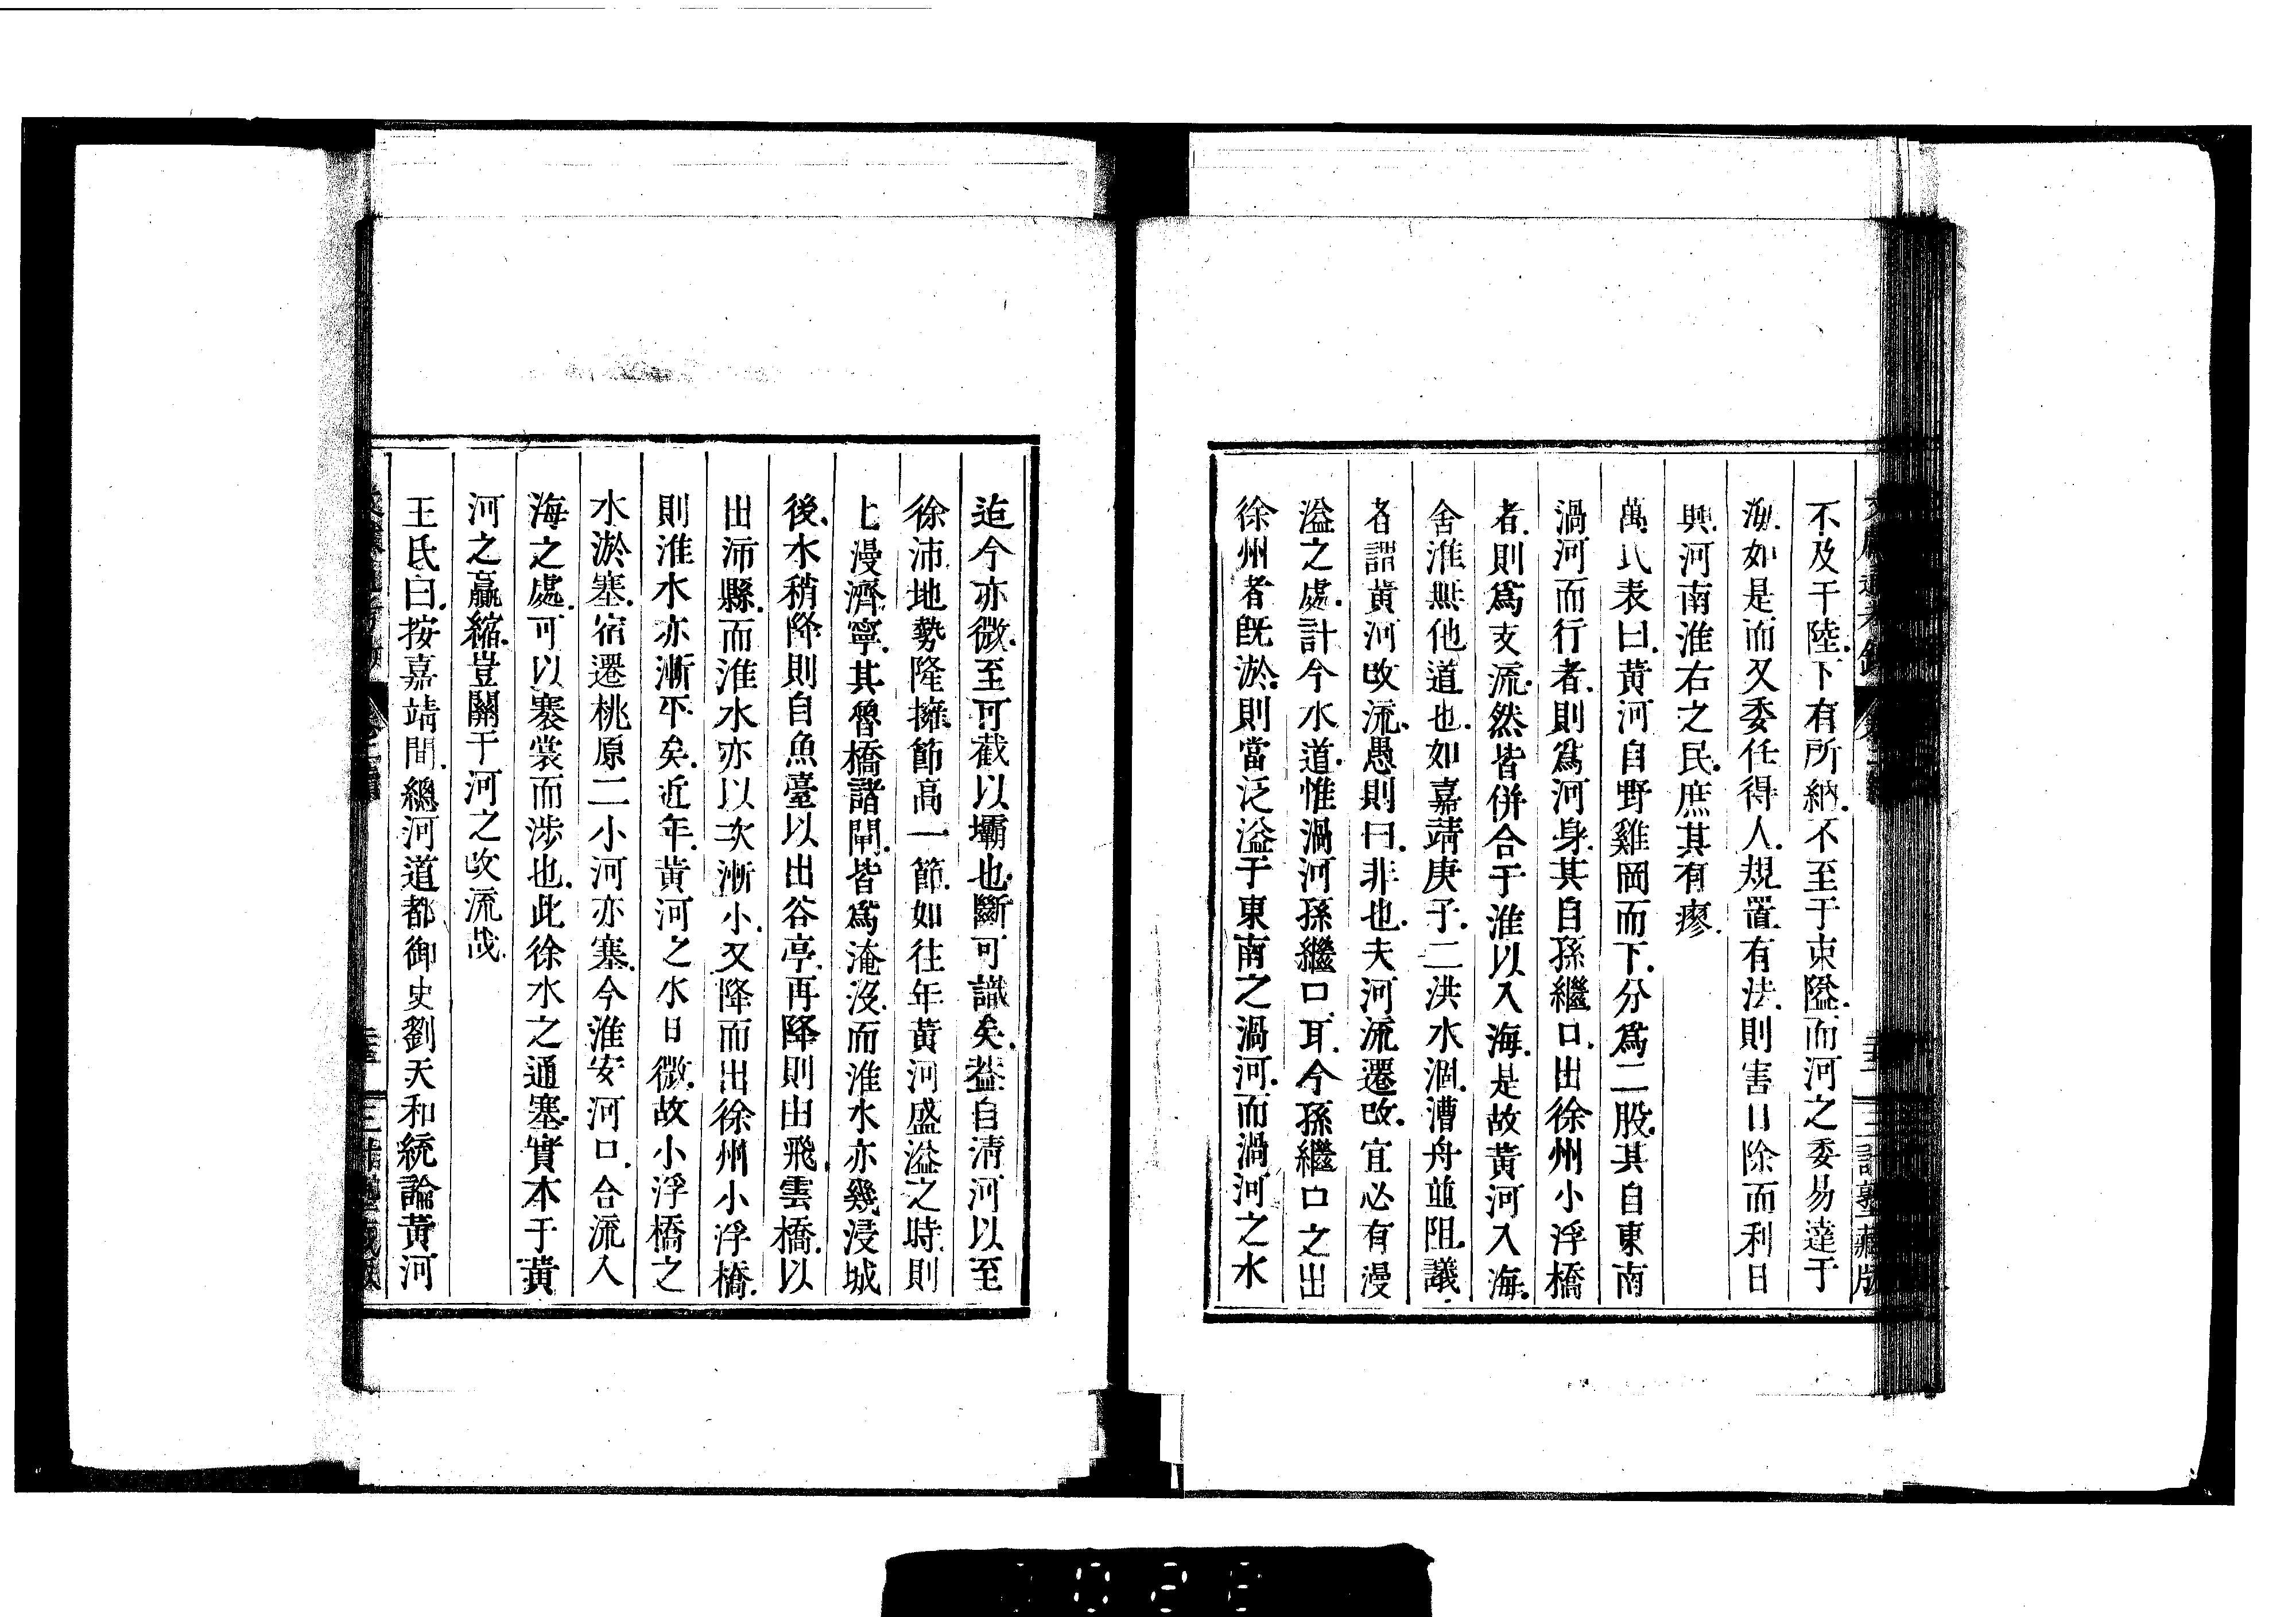 不及于陸下有所納不至于束隘而河之委易達于
海如是而又委任得人規置有法則害日除而利日
興河南淮右之民庶其有瘳
萬氏表曰黃河自野雞岡而下分爲二股其自東南
渦河而行者則爲河身其自孫繼口出徐州小浮橋
者則爲支流然皆併合于淮以入海是故黃河入海
舍淮無他道也如嘉靖庚子二洪水涸漕舟並阻議
者謂黃河改流愚則曰非也夫河流遷改宜必有漫
溢之處計今水道惟渦河孫繼口耳今孫繼口之出
徐州者既淤則當泛溢于東南之渦河而渦河之水
迨今亦微至可截以壩也斷可識矣葢自清河以至
徐沛地勢隆擁節高一節如往年黃河盛溢之時則
上漫濟寧其魯橋諸閘皆爲淹沒而淮水亦幾浸城
後水稍降則自魚臺以出谷亭再降則由飛雲橋以
出沛縣而淮水亦以次漸小又降而出徐州小浮橋
則淮水亦漸平矣近年黃河之水日微故小浮橋之
水淤塞宿遷桃原二小河亦塞今淮安河口合流入
海之處可以褰裳而涉也此徐水之通塞實本于黃
河之贏縮豈關于河之改流哉
王氏曰按嘉靖間總河道都御史劉天和統論黃河